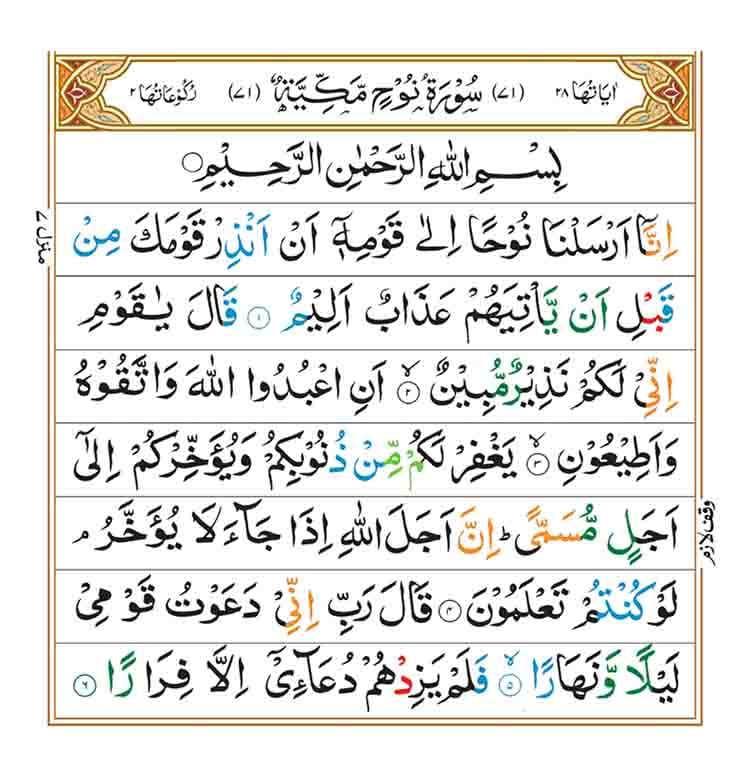 اٰیَاتُهَا ۲۸ (۷۱) سُوْرَةُ نُوْحٍ مَّكِّیَّةٌ (۷۱) رُكُوْعَاتُهَا ۲
بِسْمِ اللّٰهِ الرَّحْمٰنِ الرَّحِیْمِ
اِنَّاۤ اَرْسَلْنَا نُوْحًا اِلٰى قَوْمِهٖۤ اَنْ اَنْذِرْ قَوْمَكَ مِنْ
منزل ۷
قَبْلِ اَنْ یَّاْتِیَهُمْ عَذَابٌ اَلِیْمٌ ۱ قَالَ یٰقَوْمِ
اِنِّیْ لَكُمْ نَذِیْرٌ مُّبِیْنٌ ۙ۲ اَنِ اعْبُدُوا اللّٰهَ وَاتَّقُوْهُ
وَاَطِیْعُوْنِ ۙ۳ یَغْفِرْ لَكُمْ مِّنْ ذُنُوْبِكُمْ وَیُؤَخِّرْكُمْ اِلٰۤى
اَجَلٍ مُّسَمًّى ؕ اِنَّ اَجَلَ اللّٰهِ اِذَا جَآءَ لَا یُؤَخَّرُ ۘ
وقف لازم
لَوْ كُنْتُمْ تَعْلَمُوْنَ ۴ قَالَ رَبِّ اِنِّیْ دَعَوْتُ قَوْمِیْ
لَیْلًا وَّنَهَارًا ۙ۵ فَلَمْ یَزِدْهُمْ دُعَآءِیْۤ اِلَّا فِرَارًا ۶